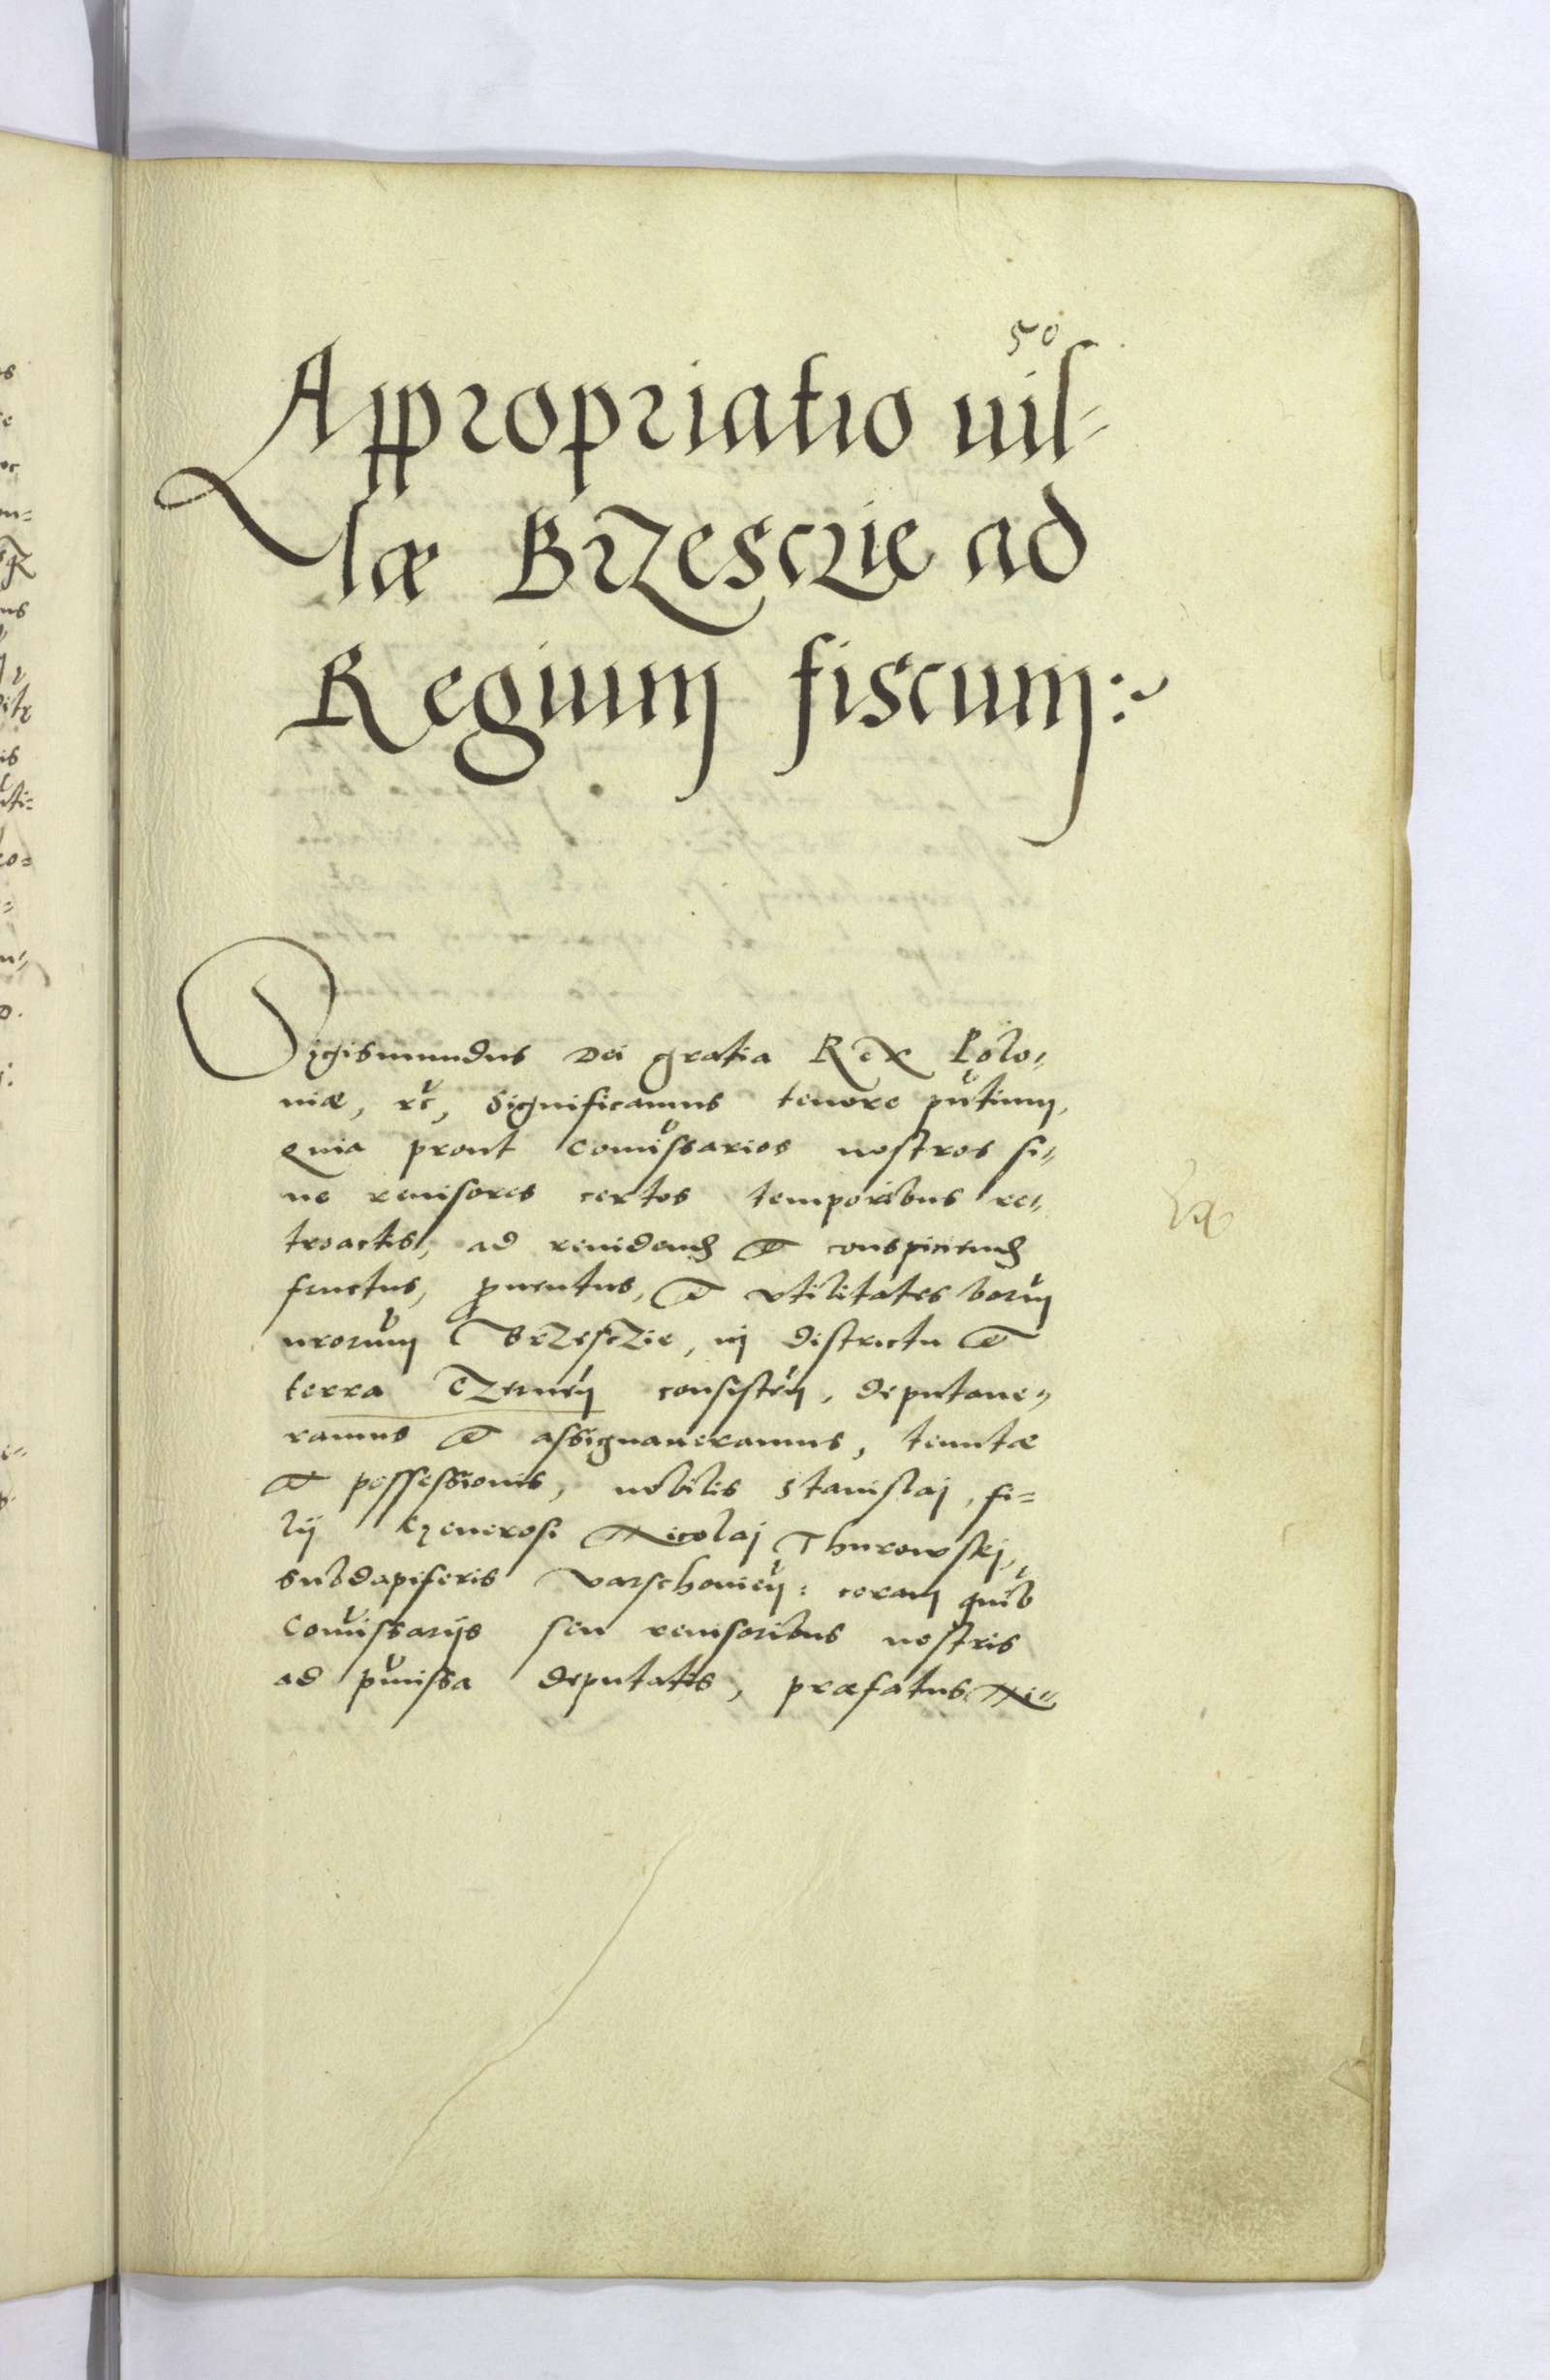 50
Appropriatio uil-
læ Brzesczie ad
Regium fiscum:~
Sigismundus Dei gratia Rex Polo-
niæ, etc, Significamus tenore pn̄tium,
Quia prout Com̄issarios nostros si-
ue reuisores certos temporibus re-
troactis, ad reuidend et conspiciend
fructus, prouentus, et vtilitates borum
nrorum Brzesczie, in districtu et
terra Czernen consisten, deputaue-
ramus et assignaueramus, tenutæ
et possessionis, nobilis Stanislaj, fi-
lij Generosi Nicolaj Thurowskj,
subdapiferis Varschouien: coram quib
Com̄issarijs seu reuisoribus nostris
ad pm̄issa deputatis, præfatus Ni-